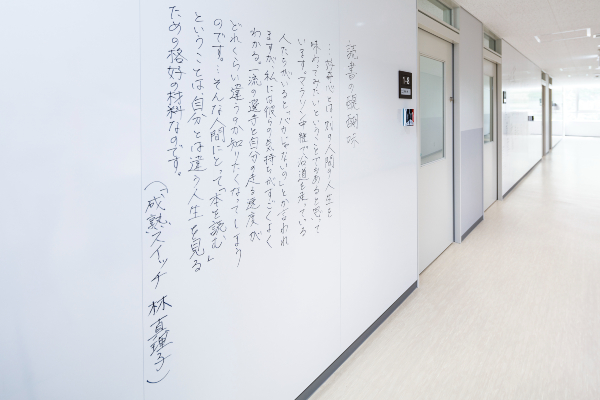 読書の醍醐味
…好奇心とは、別の人間の人生を
味わってみたいということでもあると思って
います。マラソン中継で沿道を走っている
人たちがいると、「バカじゃないの」とか言われ
ますが、私には彼らの気持ちがすごくよく
わかる。一流の選手と自分の走る速度が
どれくらい違うのか知りたくなってしまう
のです。…そんな人間にとって「本を読む」
ということは自分とは違う人生を見る
ための格好の材料なのです。
(「成熟スイッチ」林真理子)